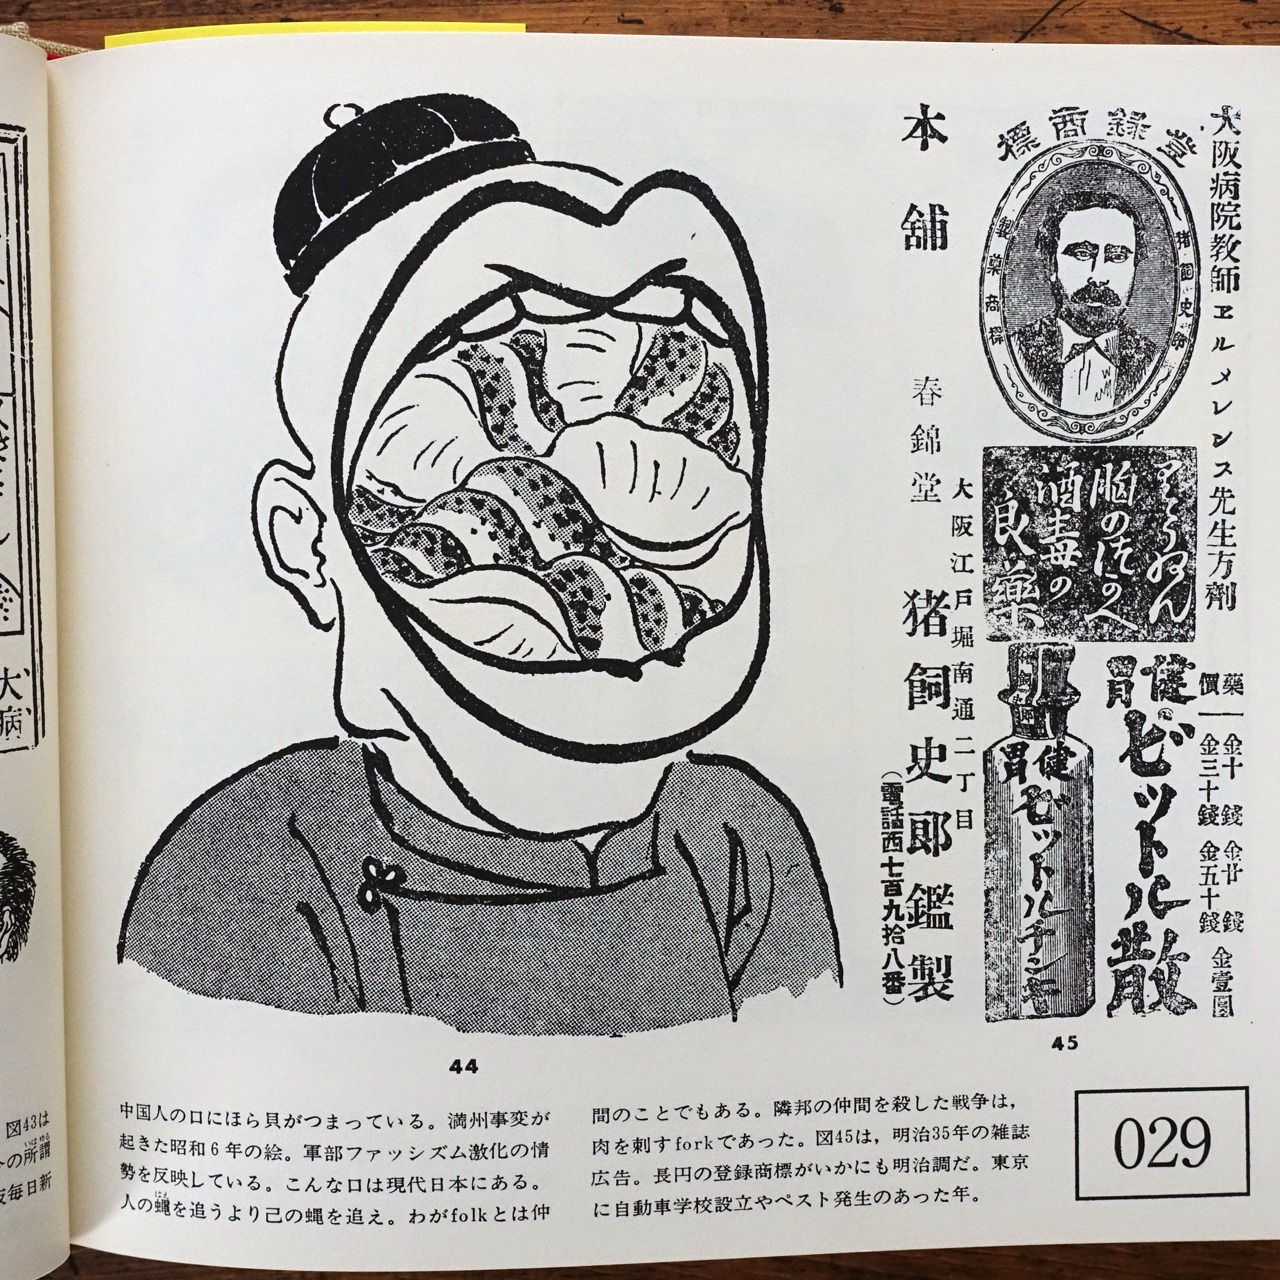 大阪病院教師ヱルメレンス先生方劑
登録商標
猪飼史郎
良薬
酒毒の
脳のつうへ
薬價
一金十錢
一金三十錢
金廿錢
金五十錢
金壹圓
健胃
ビットル散
健胃
ビットルチンキ
大阪江戸堀南通二丁目
本舗
春錦堂
猪飼史郎鑑製
(電話西七百九拾八番)
44
45
中国人の口にほら貝がつまっている。満州事変が
起きた昭和6年の絵。軍部ファッシズム激化の情
勢を反映している。こんな口は現代日本にある。
人の蠅を追うより己の蝿を追え。わがfolkとは仲
間のことでもある。隣邦の仲間を殺した戦争は,
肉を刺すforkであった。図45は,明治35年の雑誌
広告。長円の登録商標がいかにも明治調だ。東京
に自動車学校設立やペスト発生のあった年。
029
図43は
の所謂
毎日新
大病